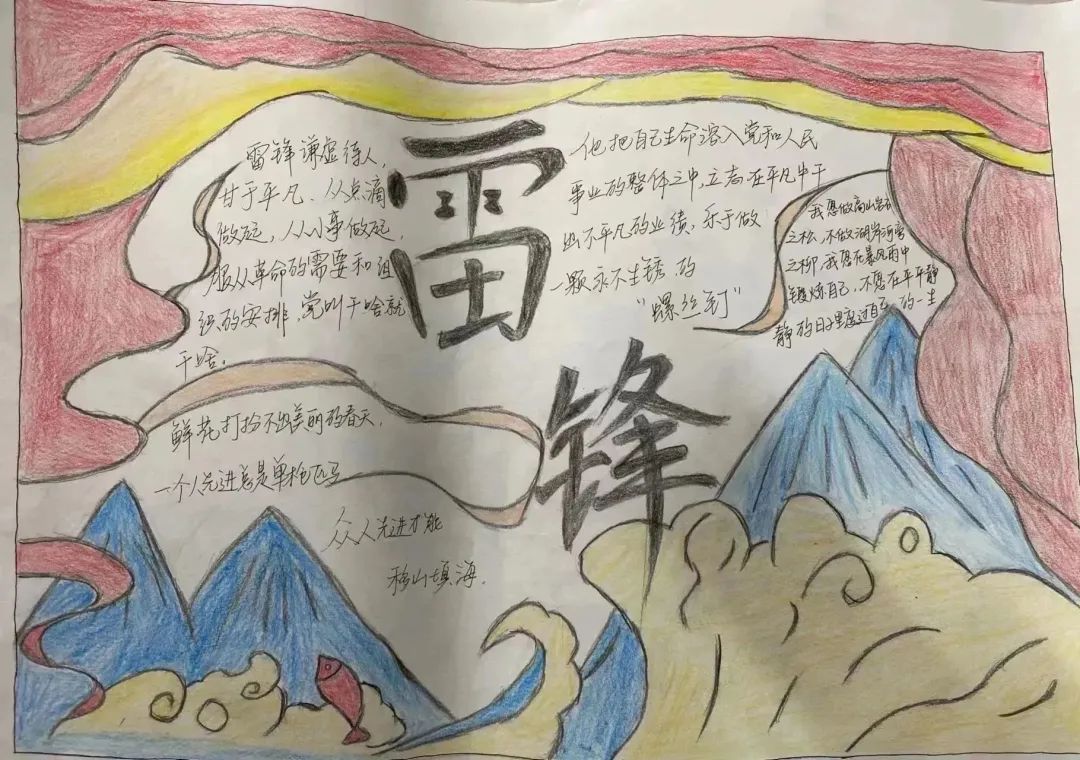 雷锋
雷锋谦虚待人，
甘于平凡、从点滴
做起，从小事做起，
服从革命的需要和组
织的安排，党叫干啥就
干啥．
他把自己生命溶入党和人民
事业的整体之中，立志在平凡中干
出不平凡的业绩，乐于做
一颗永不生锈的
“螺丝钉”
我愿做高山岩石
之松，不做湖岸河旁
之柳．我愿在暴风雨中
锻炼自己，不愿在平平静
静的日子里度过自己的一生
鲜花打扮不出美丽的春天，
一个人先进总是单枪匹马
众人先进才能
移山填海．